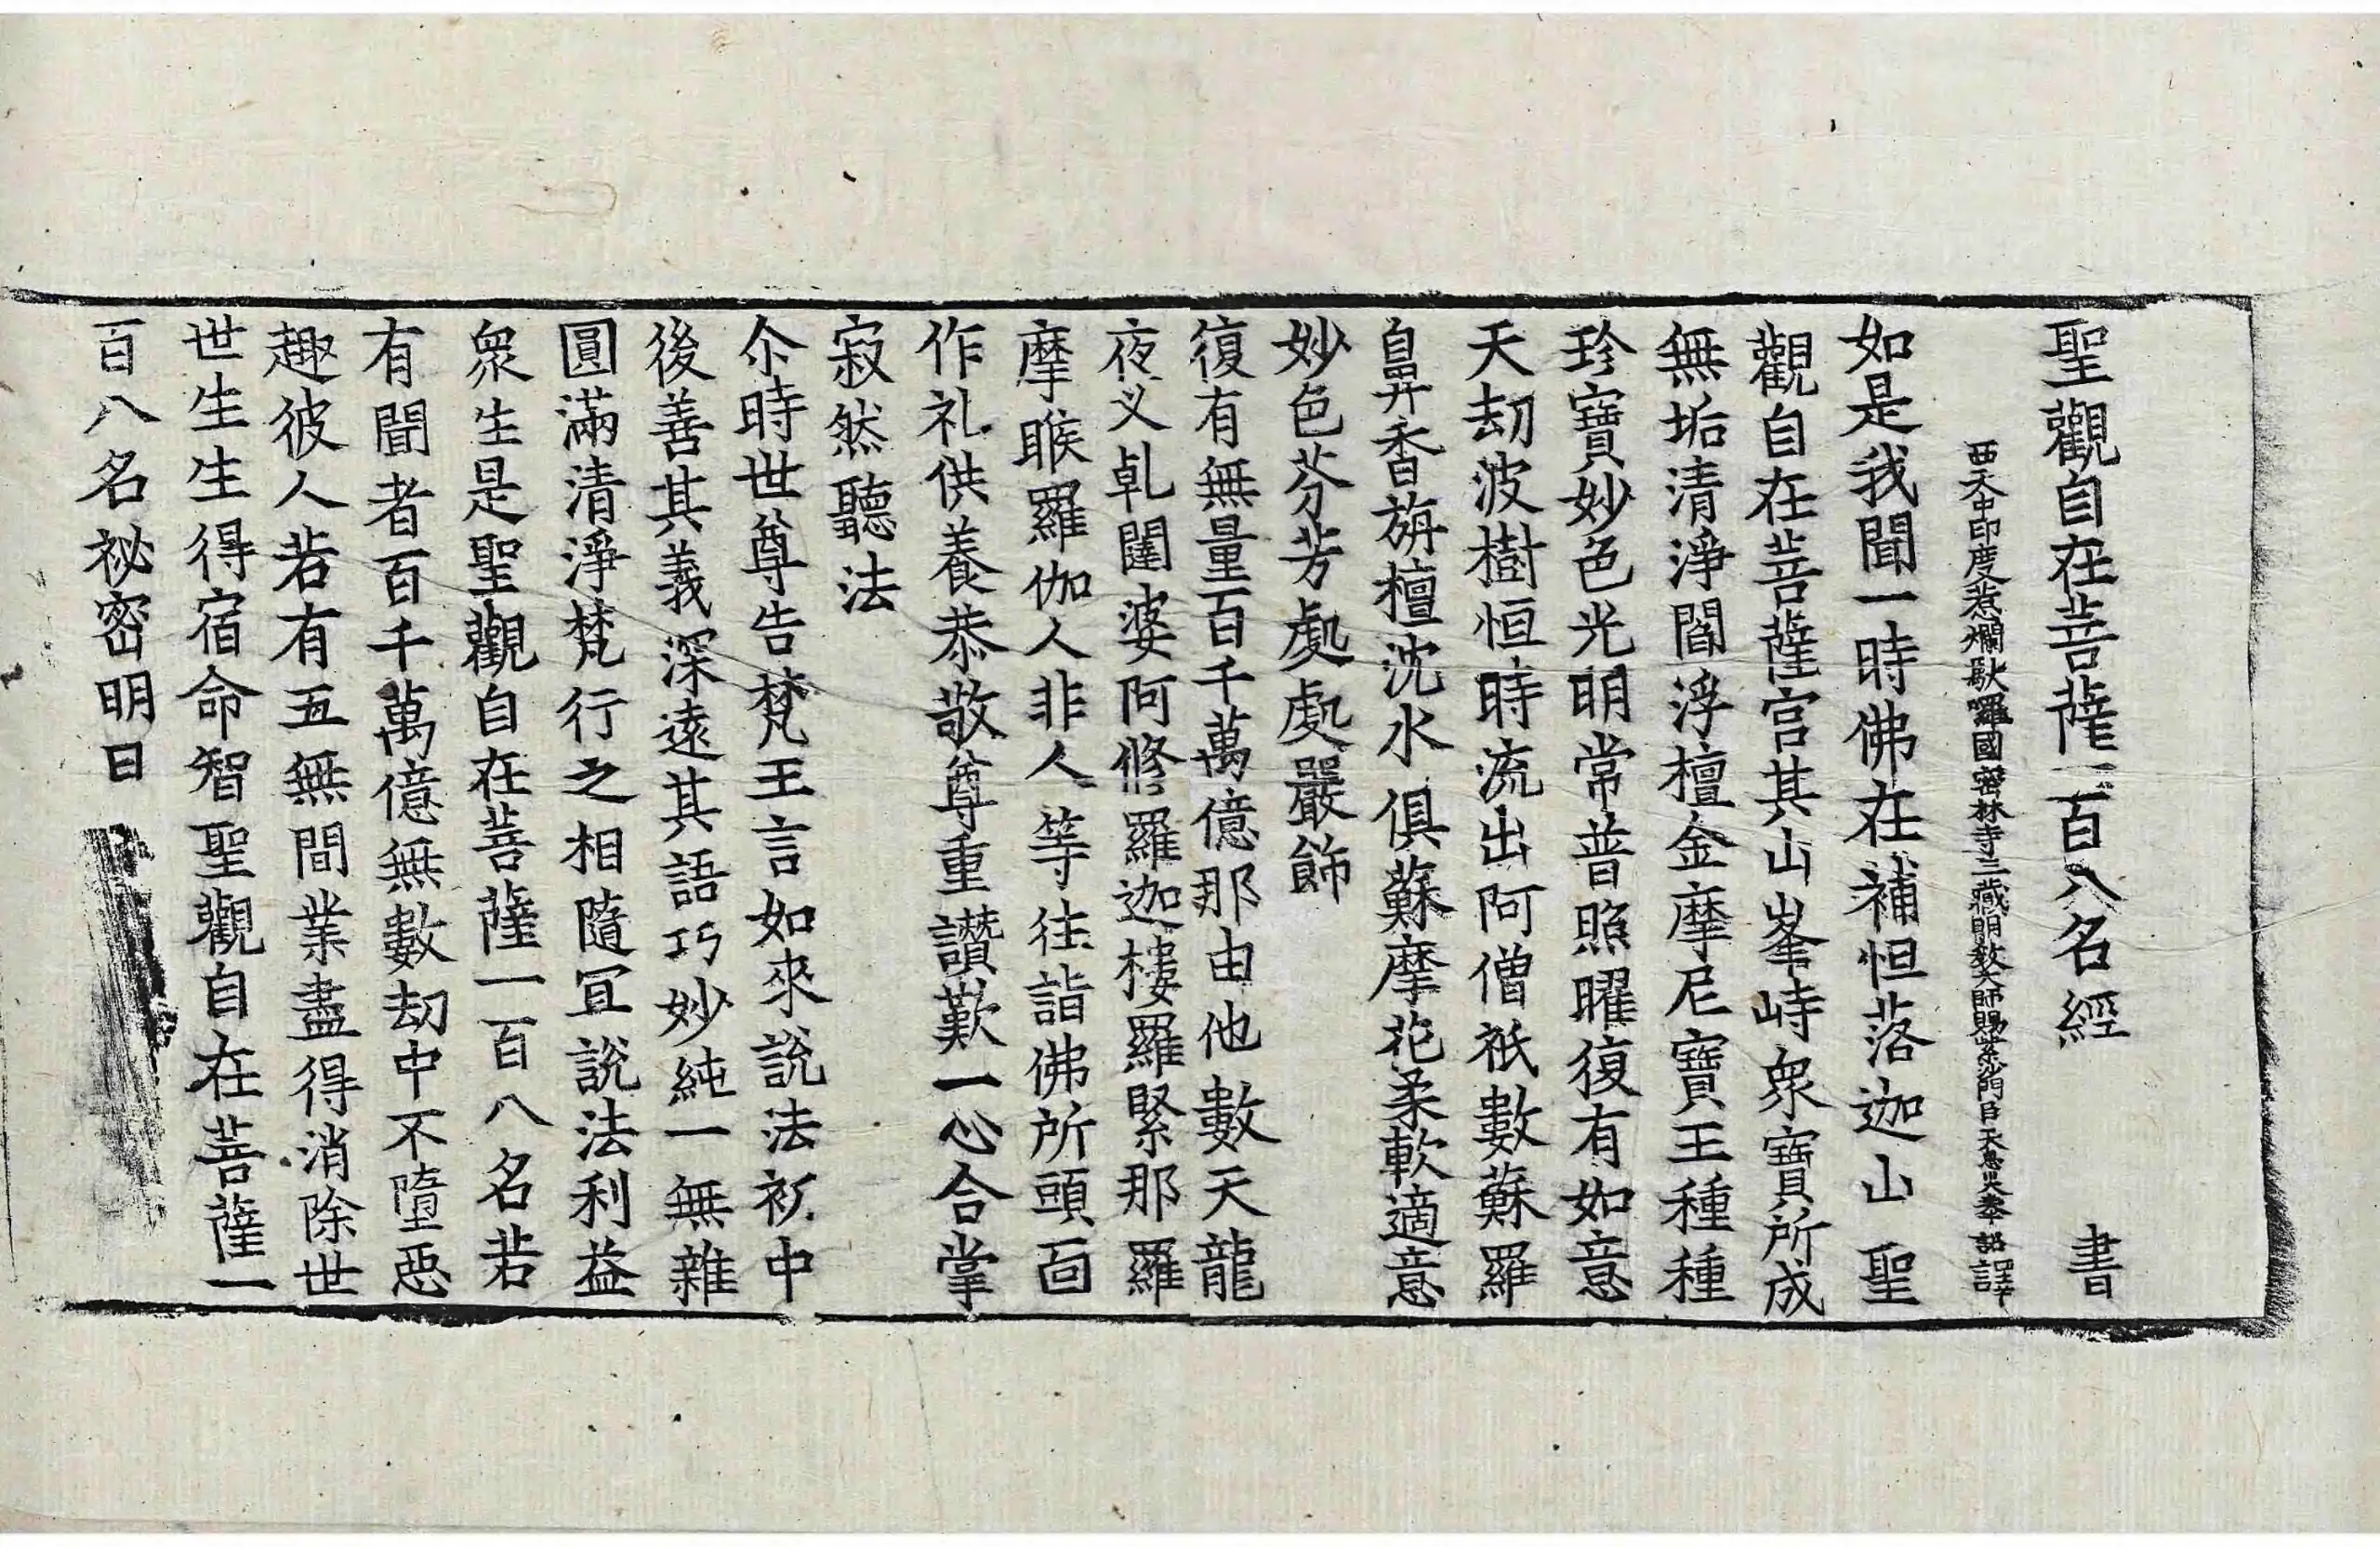 聖觀自在菩薩一百八名經 書
西天中印度惹爛馱囉國密林寺三藏明教大師賜紫沙門臣天息災奉 詔譯
如是我聞一時佛在補怛落迦山聖
觀自在菩薩宫其山峯峙衆寶所成
無垢清淨閻浮檀金摩尼寶王種種
珍寶妙色光明常普照曜復有如意
天劫波樹恒時流出阿僧祇數蘇羅
鼻香旃檀沈水俱蘇摩花柔軟適意
妙色芬芳處處嚴飾
復有無量百千萬億那由他數天龍
夜叉乹闥婆阿修羅迦樓羅緊那羅
摩睺羅伽人非人等往詣佛所頭面
作礼供養恭敬尊重讚歎一心合掌
寂然聽法
尒時世尊告梵王言如來說法初中
後善其義深遠其語巧妙純一無雜
圓滿清淨梵行之相隨宜說法利益
衆生是聖觀自在菩薩一百八名若
有聞者百千萬億無數劫中不墮惡
趣彼人若有五無間業盡得消除世
世生生得宿命智聖觀自在菩薩一
百八名祕密明曰